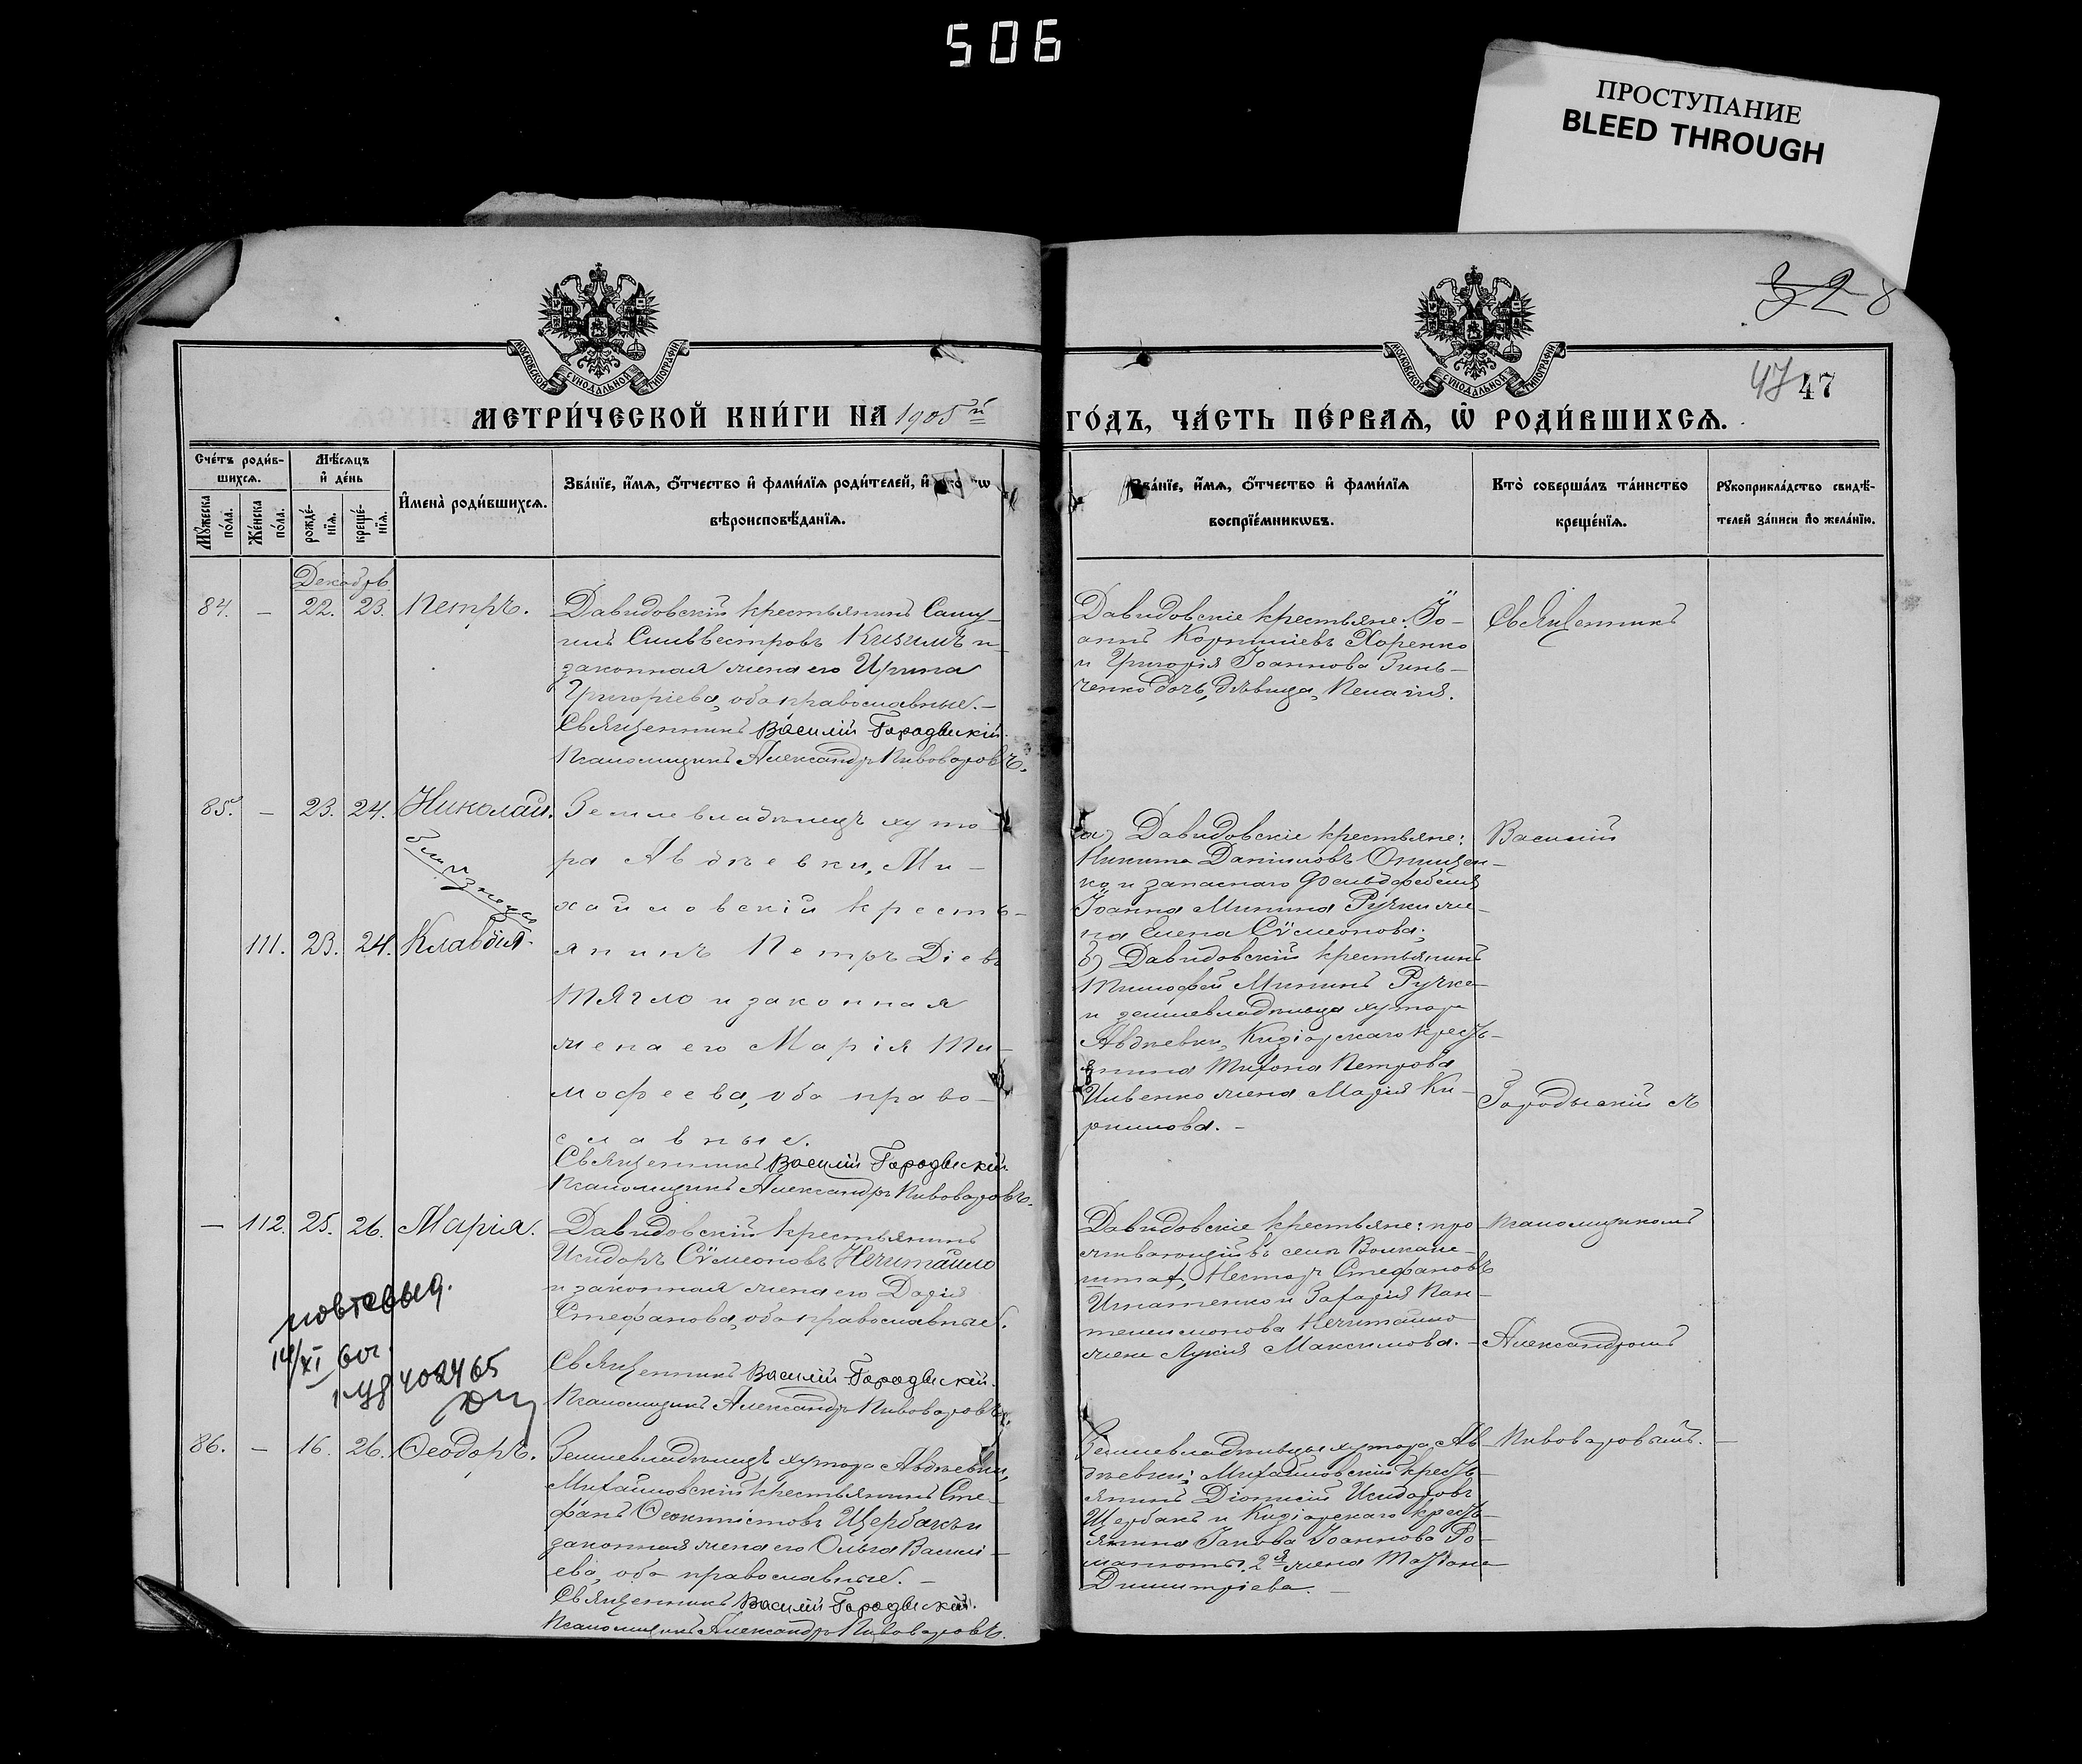 506
ПРОСТУПАНИЕ
BLEED THROUGH
МОСКОВСКОЙ СѴНОДАЛЬНОЙ ТИПОГРАФІИ
МОСКОВСКОЙ СѴНОДАЛЬНОЙ ТИПОГРАФІИ
47 47
МЕТРИ́ЧЕСКОЙ КНИ́ГИ НА 1905й
ГО́ДЪ, ЧА́СТЬ ПЕ́РВАѦ, Ѡ РОДИ́ВШИХСѦ.
Сче́тъ роди́в-
шихсѧ.
Мꙋ́жеска по́ла.
Же́нска по́ла.
Мѣ́сѧцъ
и҆ де́нь
рожде́-
нїѧ.
креще́-
нїѧ.
И҆мена̀ роди́вшихсѧ.
Зва́нїе, и҆́мѧ, ѻ҆́тчество и҆ фами́лїѧ роди́телей, и҆
вѣроисповѣ́данїѧ.
Зва́нїе, и҆́мѧ, ѻ҆́тчество и҆ фами́лїѧ
воспрїе́мникѡвъ.
Кто̀ соверша́лъ та́инство
креще́нїѧ.
Рꙋкоприкла́дство свидѣ́-
телей за́писи по жела́нїю.
Декабрь
84. — 22. 23. Петръ.
Давидовскій крестьянинъ Саму-
илъ Сильвестровъ Кизимъ и
законная жена его Ирина
Григоріева, оба православные.—
Священникъ Василій Городыскій.
Псаломщикъ Александръ Пивоваровъ.
Давидовскіе крестьяне: Іо-
аннъ Корниліевъ Хоренко
и Григорія Іоаннова Зинь-
ченко дочь, дѣвица, Пелагія.
Священникъ
85. — 23. 24. Николай.
близнецы
111. 23. 24. Клавдія.
Землевладѣлецъ хуто-
ра Авдѣевки, Ми-
хайловскій кресть-
янинъ Петръ Діевъ
Тягло и законная
жена его Марія Ти-
мофеева, оба право-
славные.
Священникъ Василій Городыскій.
Псаломщикъ Александръ Пивоваровъ.
а) Давидовскіе крестьяне:
Никита Даніиловъ Онищен-
ко и запаснаго фельдфебеля
Іоанна Минина Ручки же-
на Елена Сѵмеонова;
б) Давидовскій крестьянинъ
Тимофей Мининъ Ручка
и землевладѣльца хутора
Авдѣевки, Кидіарскаго кресть-
янина Тихона Петрова
Ивенко жена Марія Ки-
риллова. —
Василій
Городыскій съ
— 112. 25. 26. Марія.
Давидовскій крестьянинъ
Исидоръ Сѵмеоновъ Нечитайло
и законная жена его Дарія
Стефанова, оба православные.
Священникъ Василій Городыскій.
Псаломщикъ Александръ Пивоваровъ.
Давидовскіе крестьяне: про
живающій въ селѣ
Несторъ Стефановъ
Игнатенко и Захарія Пан-
телеимонова Нечитайло
жена Лукія Максимова. —
псаломщикомъ
Александромъ
14/XI 60г.
402465
86. — 16. 26. Ѳеодоръ.
Землевладѣлецъ хутора Авдѣевки,
Михайловскій крестьянинъ Сте-
фанъ Ѳеоктистовъ Щербакъ и
законная жена его Ольга Василі-
ева, оба православные. —
Священникъ Василій Городыскій.
Псаломщикъ Александръ Пивоваровъ.
Землевладѣльцы хутора Ав-
дѣевки: Михайловскій кресть-
янинъ Діонисій Исидоровъ
Щербакъ и Кидіарскаго кресть-
янина Іакова Іоаннова
2я жена Татіана
Димитріева. —
Пивоваровымъ. —